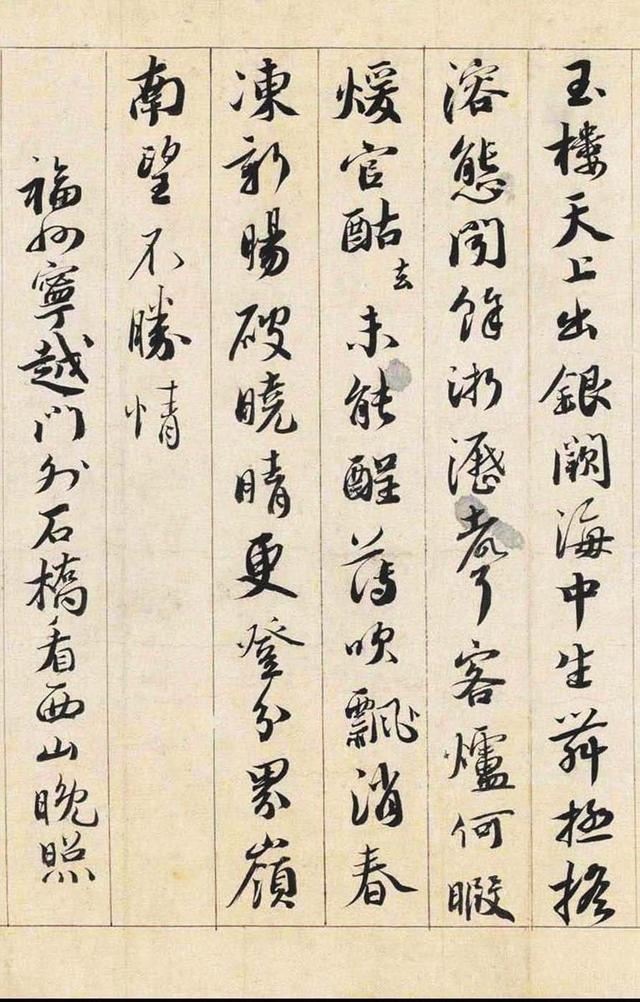 玉樓天上出銀闕海中生舞極搖
溶態聞餘淅瀝聲客爐何暇
煖官酤去未能醒薄吹飄消春
凍新暘破曉晴更登分界嶺
南望不勝情
福州寧越門外石橋看西山晚照